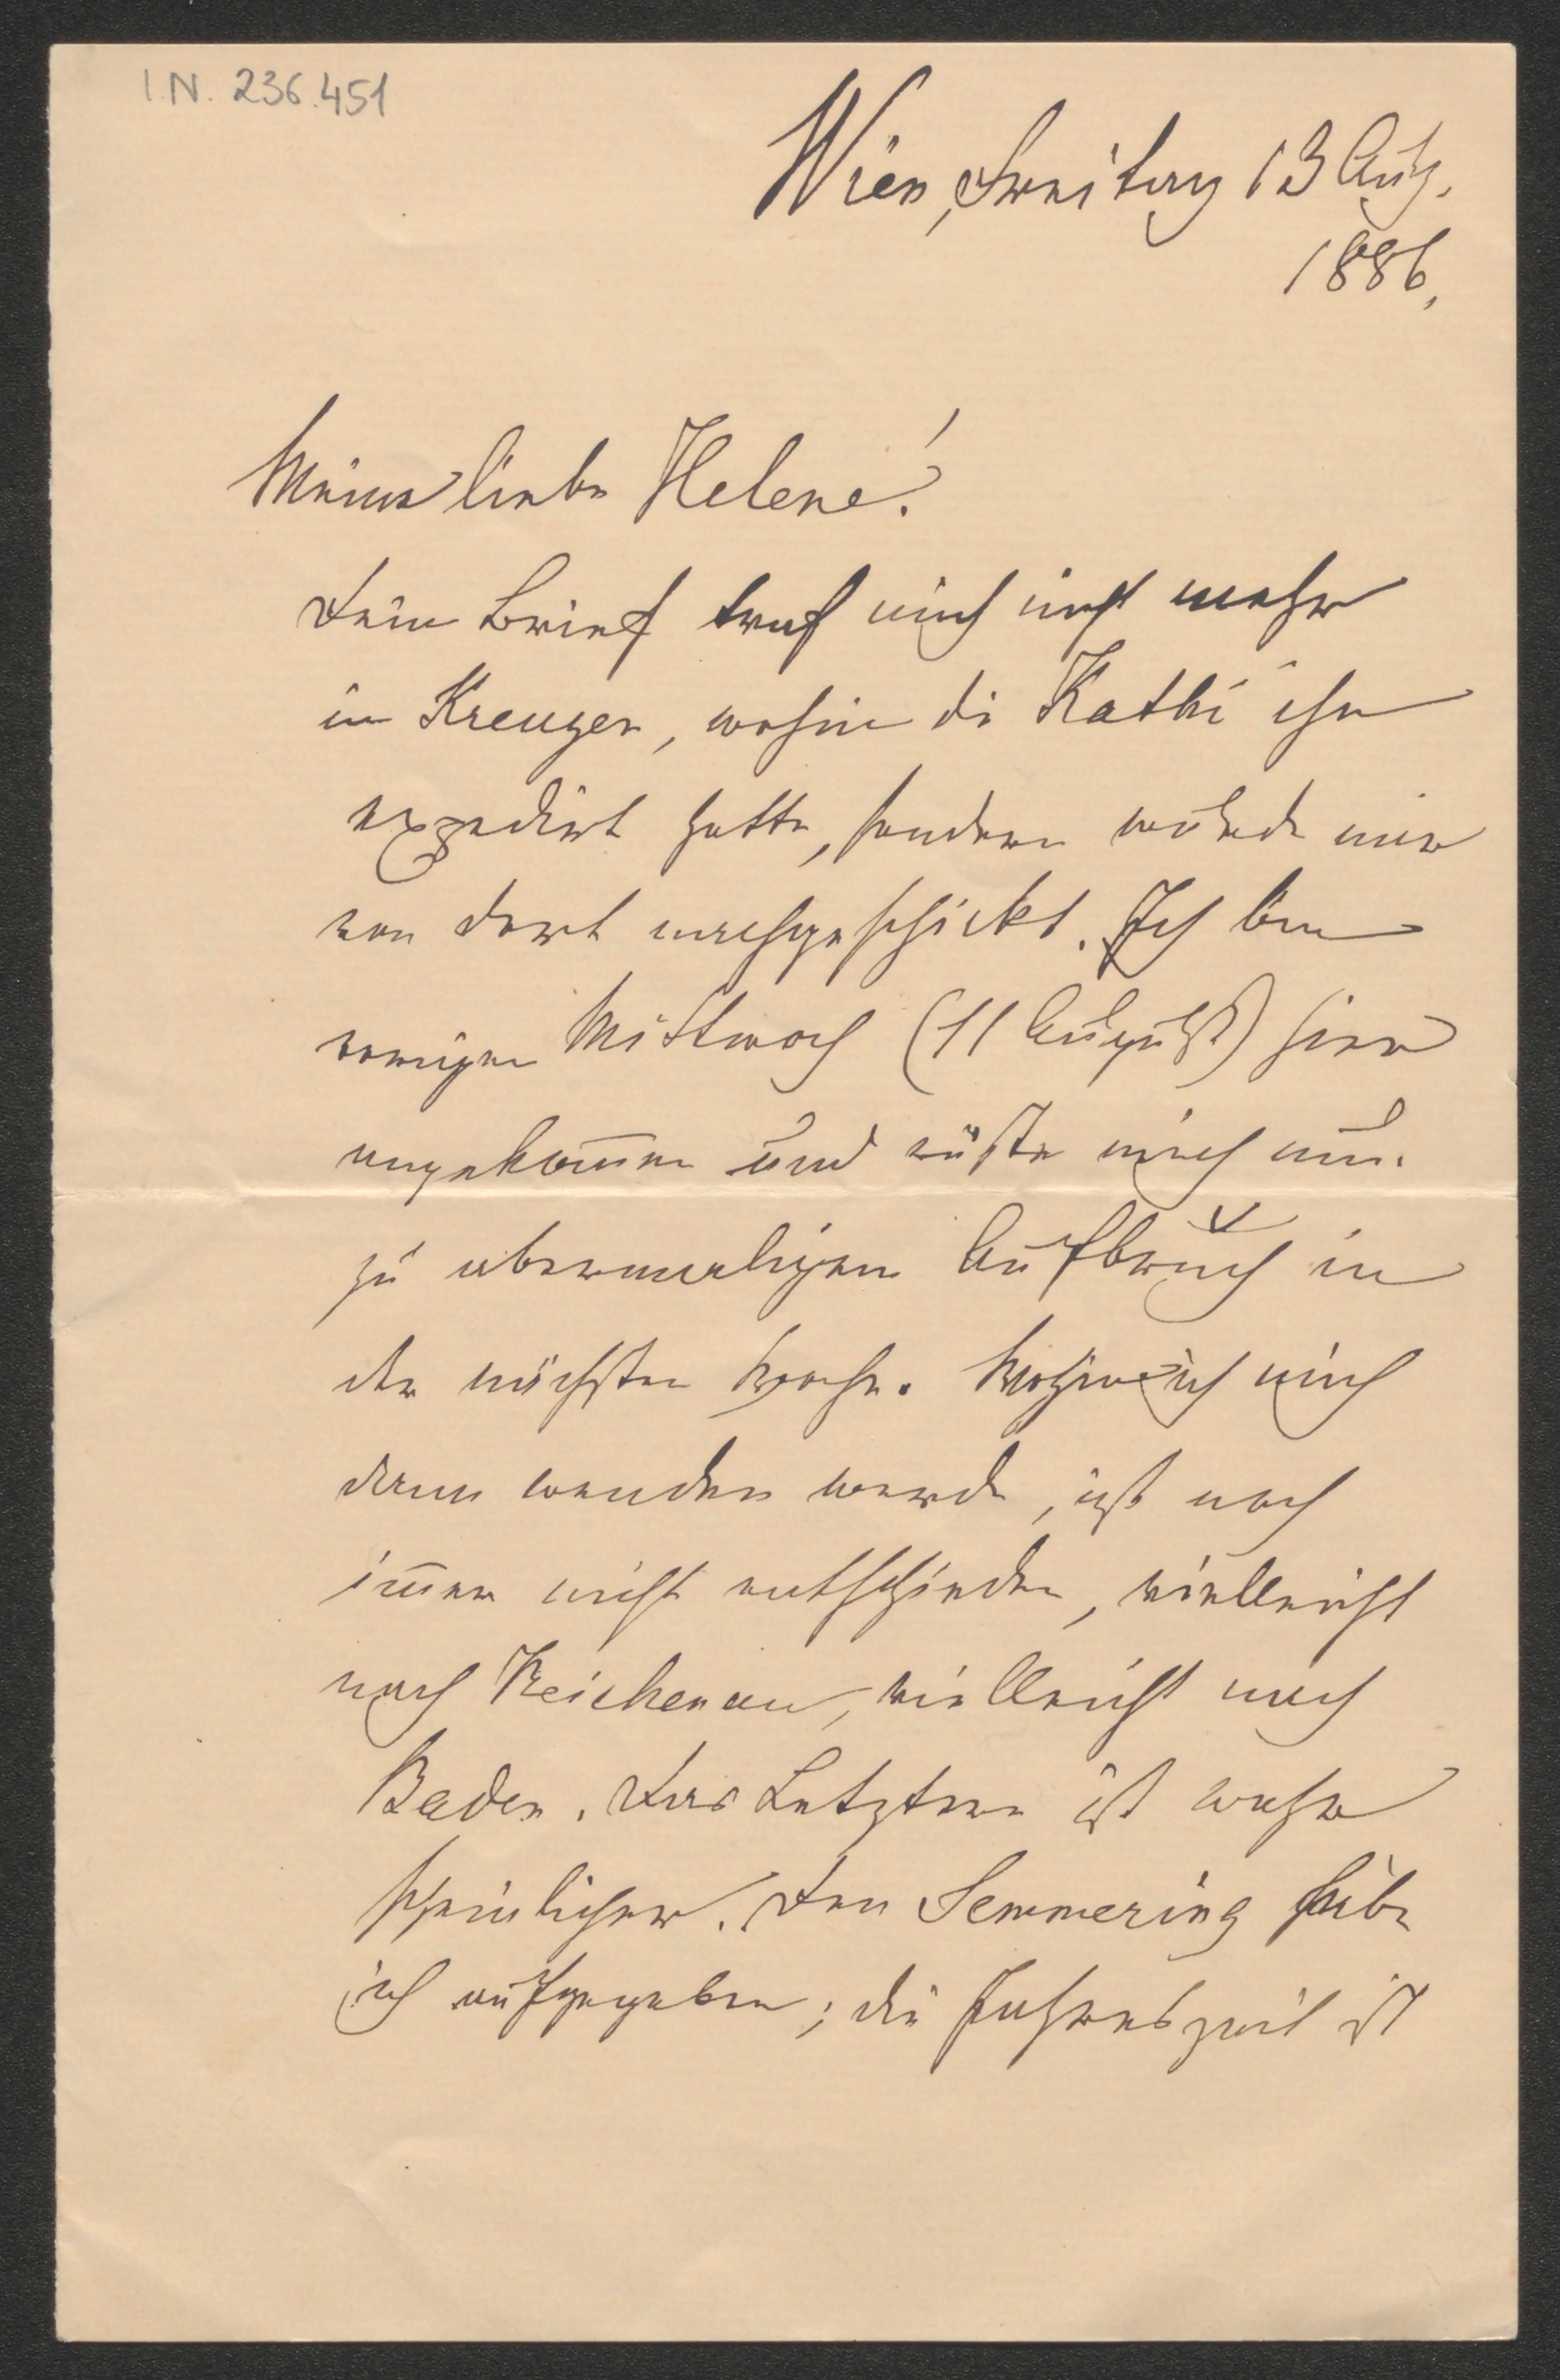 I.N. 236.451
Wien, Freitag 13 Aug.
1886.
Meine liebe Helene!
Dein Brief traf mich nicht mehr
in Kreuzen, wohin die Kathi ihn
expedirt hatte, sondern wurde mir
von dort nachgeschickt. Ich bin
vorigen Mittwoch (11 August) hier
angekom̅en und rüste mich nun
zu abermaligem Aufbruch in
der nächsten Woche. Wohin ich mich
dann wenden werde, ist noch
im̅er nicht entschieden, vielleicht
nach Reichenau, vielleicht nach
Baden. Das Letztere ist wahr
scheinlicher. Den Semmering habe
ich aufgegeben; die Jahreszeit ist